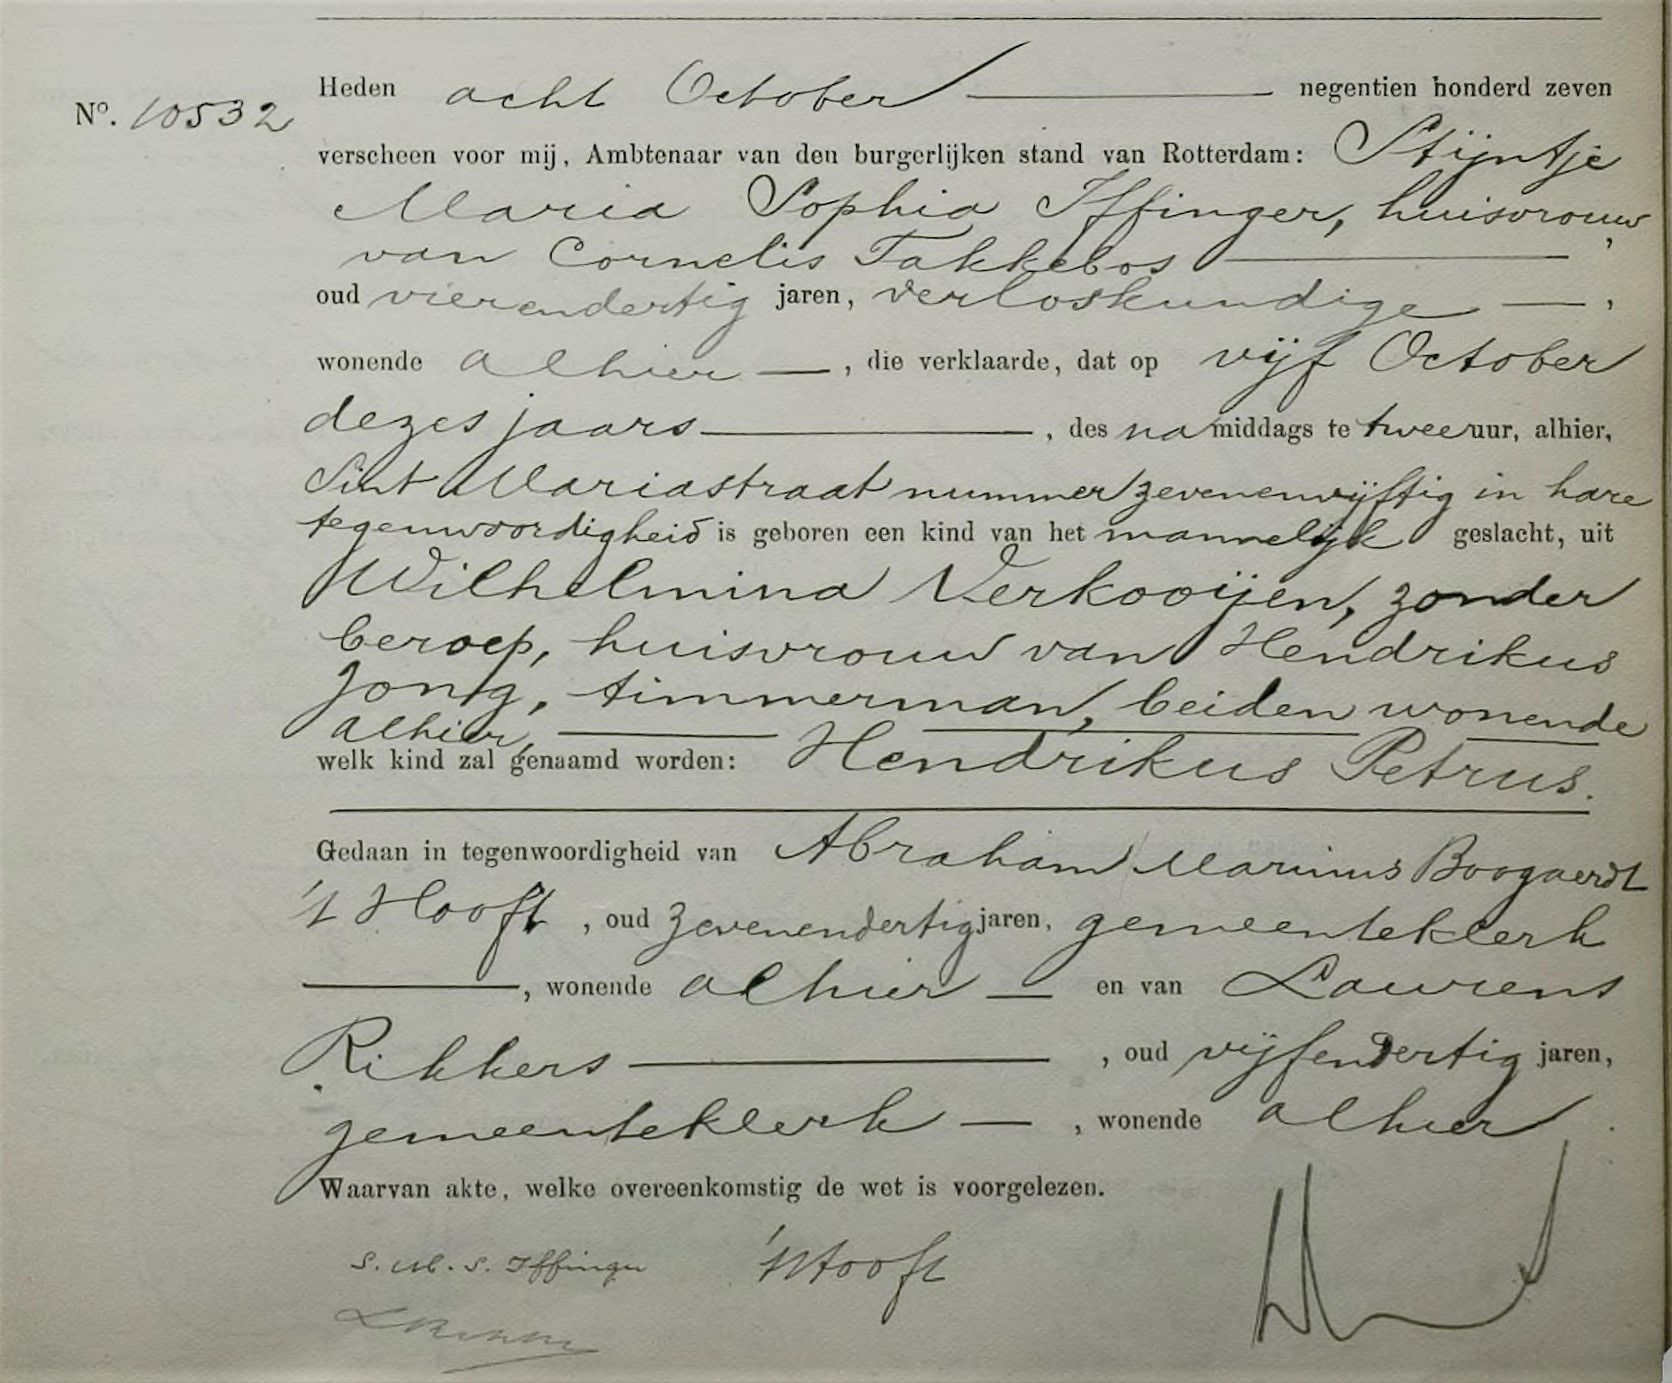 Heden acht October negentien honderd zeven
No. 10532
verscheen voor mij, Ambtenaar van den burgerlijken stand van Rotterdam: Stijntje
Maria Sophia Iffinger, huisvrouw
van Cornelis Takkebos,
oud vierendertig jaren, verloskundige,
wonende alhier, die verklaarde, dat op vijf October
dezes jaars, des namiddags te twee uur, alhier,
Sint Mariastraat nummer zevenenvijftig in hare
tegenwoordigheid is geboren een kind van het mannelijk geslacht, uit
Wilhelmina Verkooijen, zonder
beroep, huisvrouw van Hendrikus
Jong, timmerman, beiden wonende
alhier,
welk kind zal genaamd worden: Hendrikus Petrus.
Gedaan in tegenwoordigheid van Abraham Marinus Boogaerdt
't Hooft, oud zevenendertig jaren, gemeenteklerk
, wonende alhier en van Laurens
Rikkers, oud vijfendertig jaren,
gemeenteklerk, wonende alhier.
Waarvan akte, welke overeenkomstig de wet is voorgelezen.
S. M. S. Iffinger 't Hooft